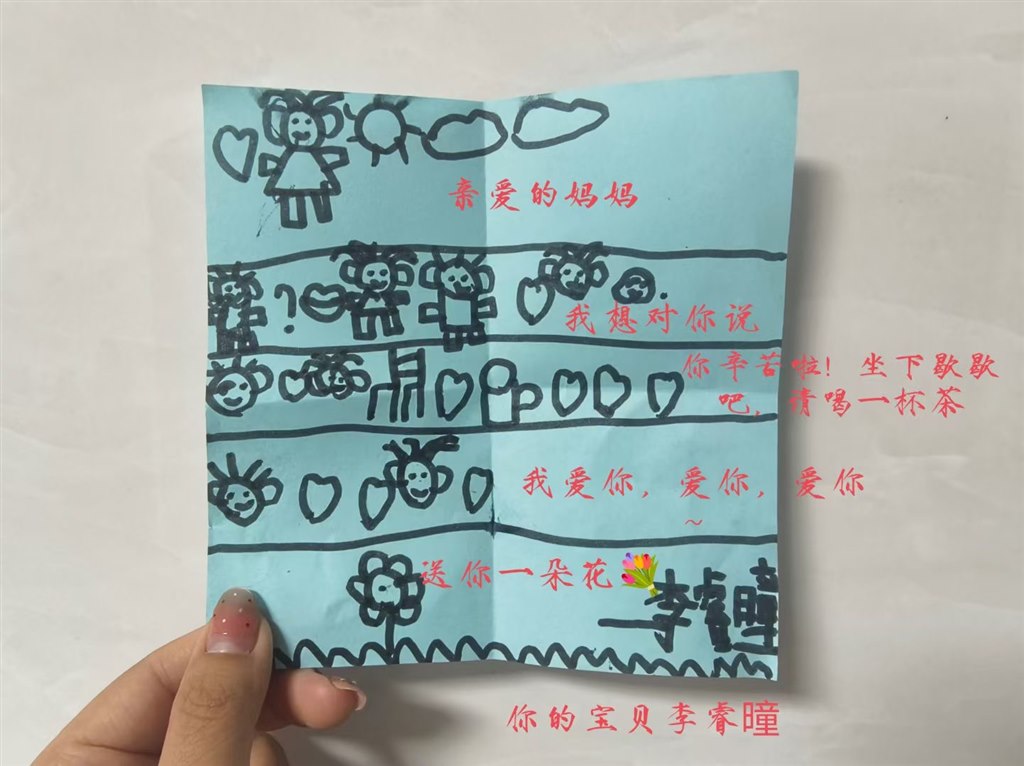 亲爱的妈妈
?
我想对你说
你辛苦啦！坐下歇歇
吧，请喝一杯茶
我爱你，爱你，爱你
~
送你一朵花
—李睿曈
你的宝贝李睿曈